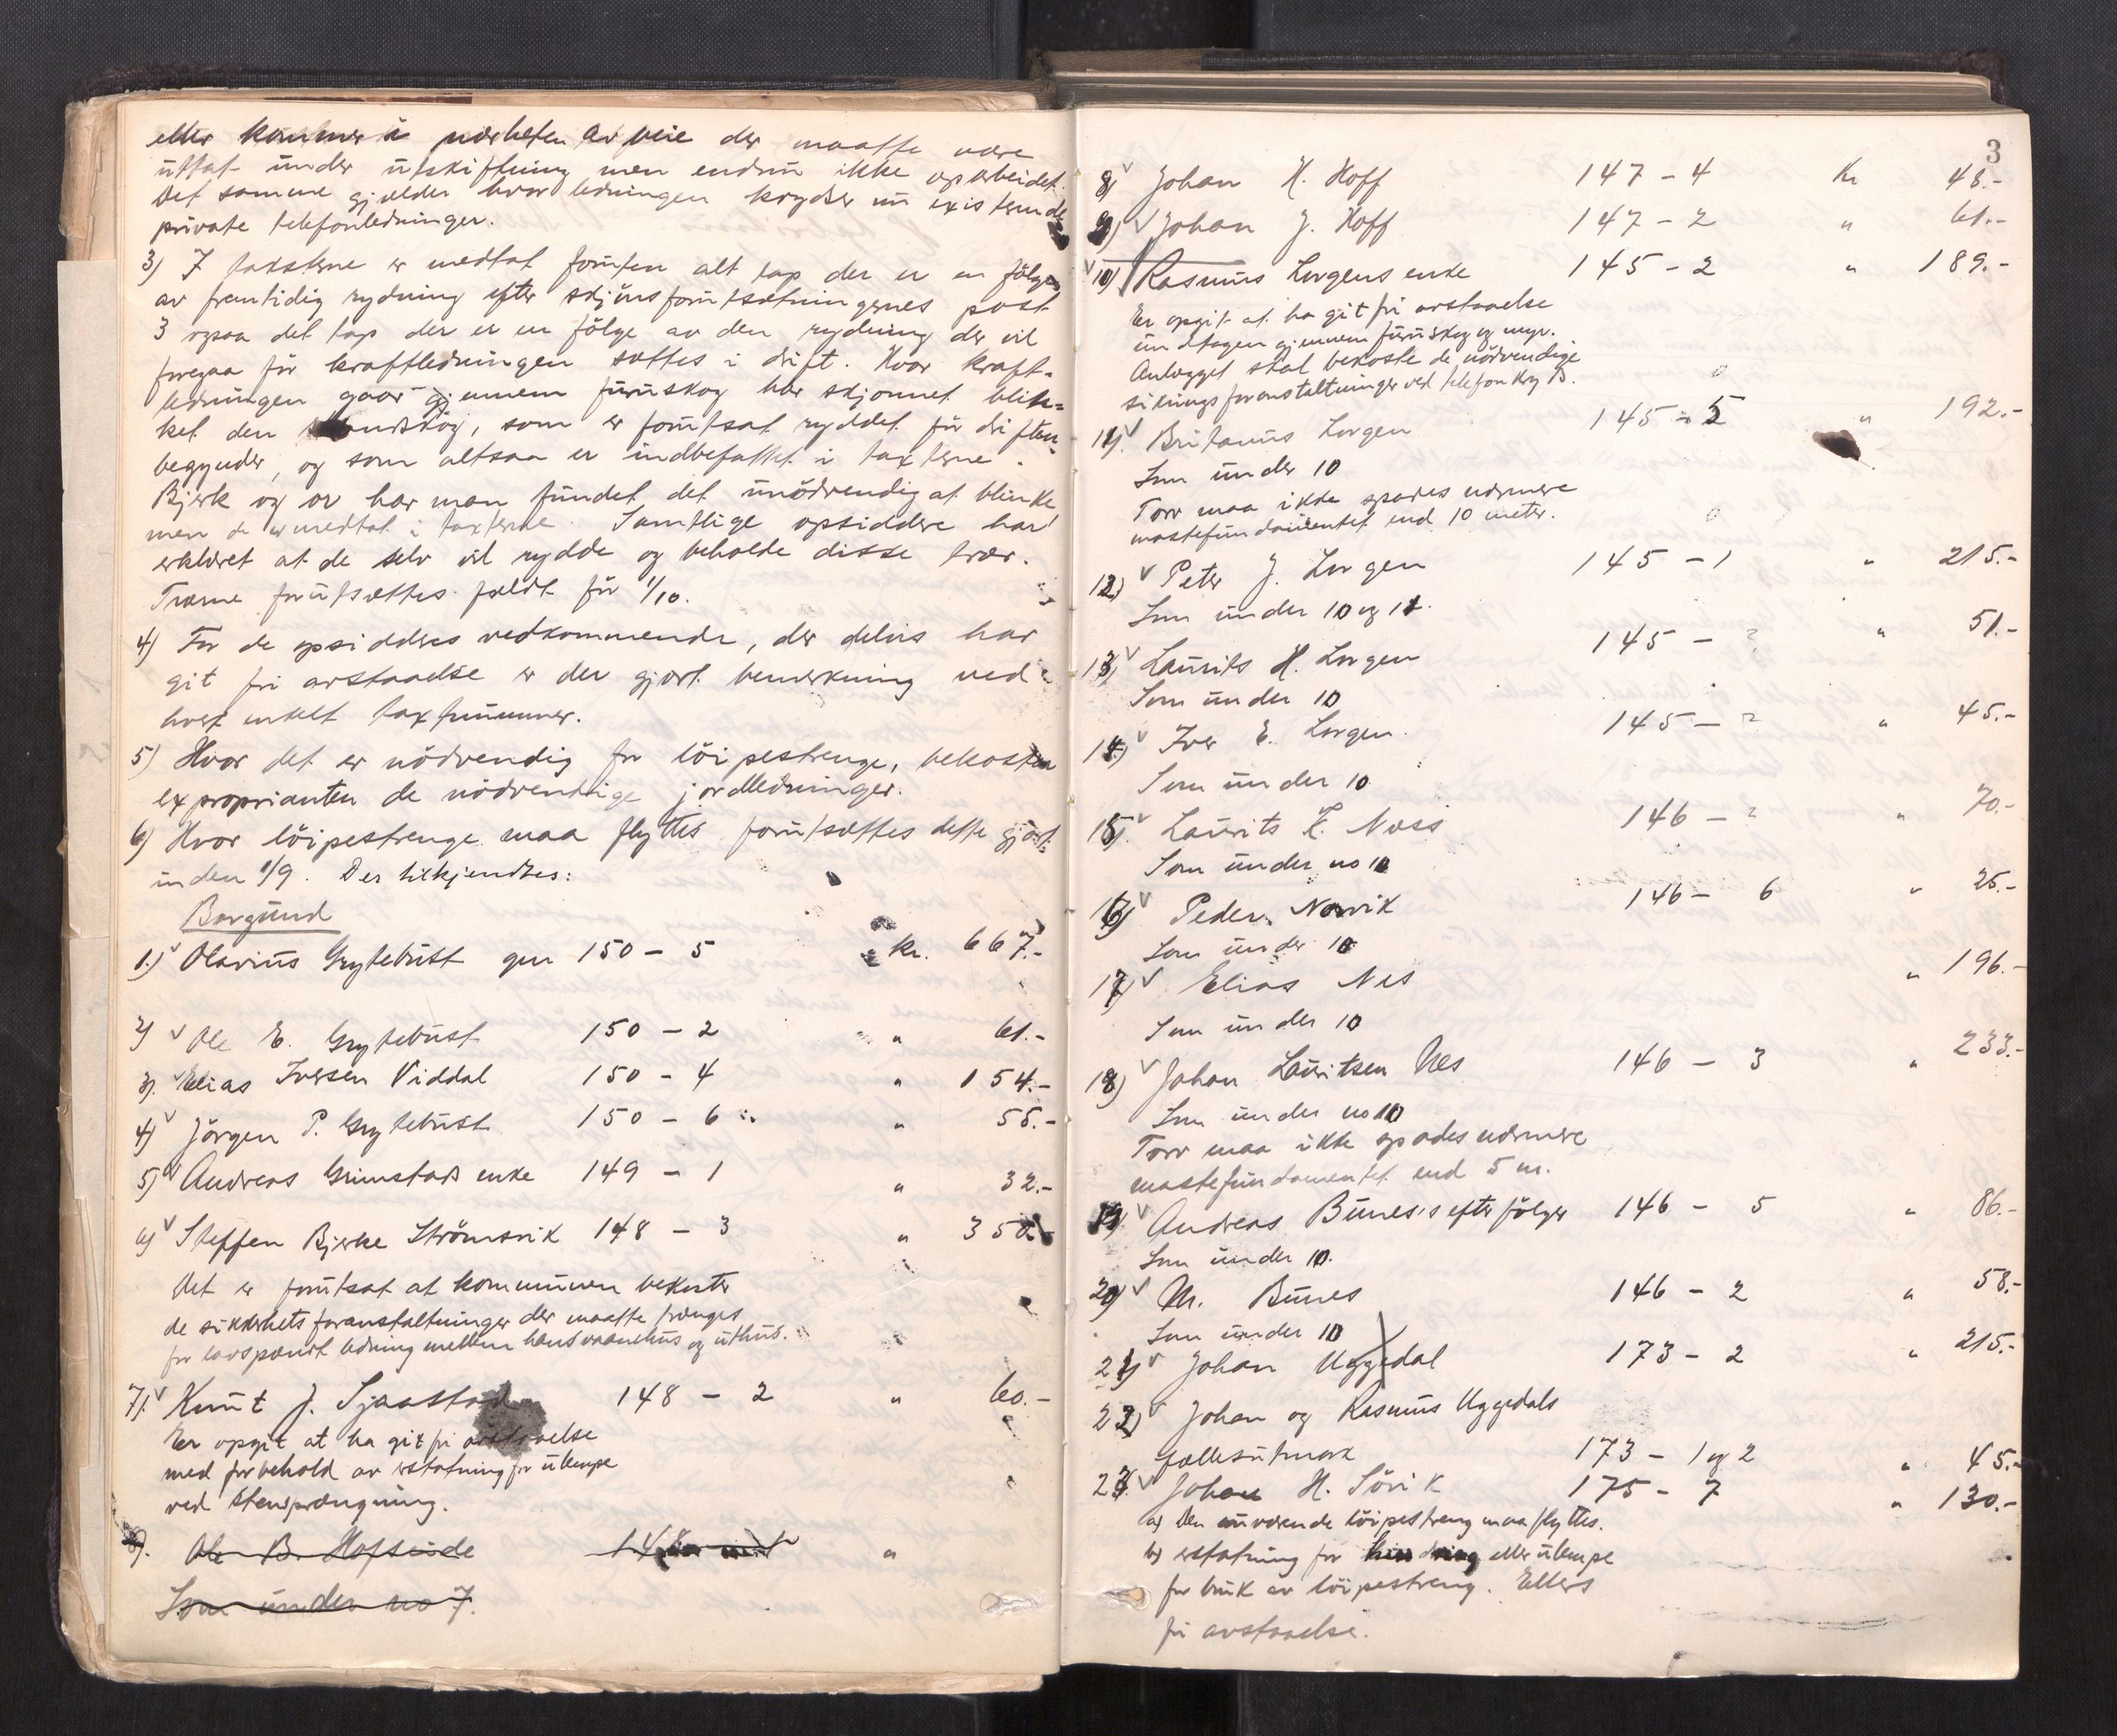 eller kommer i nærheten av veie der maatte være
uttat under utskiftning men endnu ikke oparbeidet.
Det samme gjælder hvor ledningen krydser nu existerende
private telefonledninger.
3) I taksterne er medtat foruten alt tap der er en følge
av fremtidig rydning efter skjønsforutsætningernes post
3 ogsaa det tap der er en følge av den rydning der vil
foregaa før kraftledningen sættes i drift. Hvor kraft-
ledningen gaar gjennem furuskog har skjønnet blin-
ket den skog, som er forutsat ryddet før driften
begynder, og som altsaa er indbefattet i taxterne.
Bjerk og or har man fundet det unödvendig at blinke
men de er medtat i taxterne. Samtlige opsiddere har
erklæret at de selv vil rydde og beholde disse trær.
Trærne forutsættes fældt før 1/10.
4) For de opsidderes vedkommende, der delvis har
git fri avstaaelse er der gjort bemerkning ved
hvert enkelt taxtnummer.
5) Hvor det er nödvendig for löipestrenge, bekoster
exproprianten de nödvendige jordledninger.
6) Hvor löipestrenge maa flyttes forutsættes dette gjort
inden 1/9. Der tilkjendtes:
Borgund
1.) Olavius Grytebust gnr 150 - 5 kr. 667.-
2) Ole E. Grytebust 150 - 2 " 61.-
3). Elias Iversen Viddal 150 - 4 " 154.-
4) Jörgen P. Grytebust 150 - 6 " 55.-
5) Andreas Grimstads enke 149 - 1 " 32.-
6) Steffen Bjerke Strömsvik 148 - 3 " 350.-
Det er forutsat at kommunen bekoster
de sikkerhetsforanstaltninger der maatte trænges
for lavspændt ledning mellem hans vaanehus og uthus.
7) Knut J. Sjaastad 148 - 2 " 60.-
Er opgit at ha git fri avstaaelse
med forbehold av erstatning for ulempe
ved stensprængning.
8). Ole B. Hofseide "
Som under no 7.
3
8) Johan H. Hoff 147 - 4 Kr 48.-
9) Johan J. Hoff 147 - 2 " 61.-
10) Rasmus Lorgens enke 145 - 2 " 189.-
Er opgit at ha git fri avstaaelse
undtagen gjennem furuskog og myr.
Anlægget skal bekoste de nödvendige
sikringsforanstaltninger ved telefonkryds.
11) Britanus Lorgen 145 - 5 " 192.-
Som under 10
Torv maa ikke spades nærmere
mastefundamentet end 10 meter.
12) Peter J. Lorgen 145 - 1 " 215.-
Som under 10 og 11.
13) Laurits H. Lorgen 145 - ? " 51.-
Som under 10
14) Iver E. Lorgen. 145 - ? " 45.-
Som under 10
15) Laurits K. Næss 146 - ? " 70.-
Som under no 10
16) Peder Norvik 146 - 6 " 25.-
Som under 10
17) Elias Nes " 196.-
Som under 10
18) Johan Lauritsen Nes 146 - 3 " 233.-
Som under no 10
Torv maa ikke spades nærmere
mastefundamentet end 5 m.
19) Andreas Bunes's efterfölger 146 - 5 " 86.-
Som under 10.
20) M. Bunes 146 - 2 " 58.-
Som under 10
21) Johan Uggedal 173 - 2 " 215.-
22) Johan og Rasmus Uggedals
fællesutmark 173 - 1 og 2 " 45.-
23) Johan H. Sövik 175 - 7 " 130.-
a) Den nuværende löipestreng maa flyttes.
b) erstatning for hindring eller ulempe
for bruk av löipestreng. Ellers
fri avstaaelse.